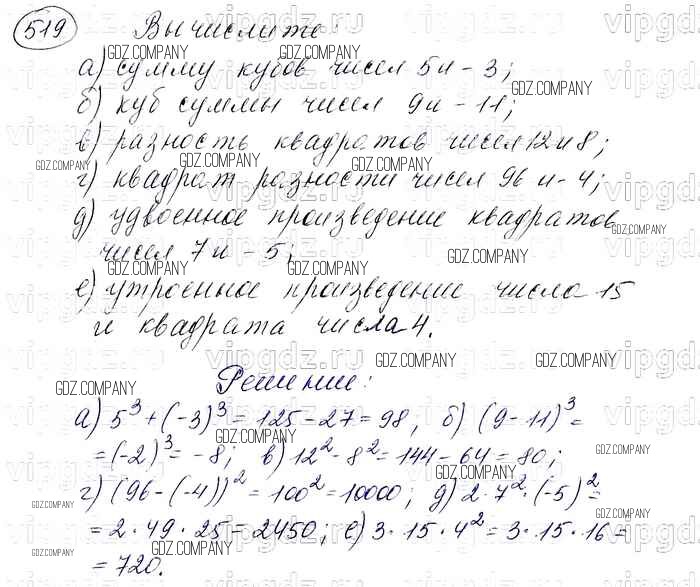 519 Вычислите:
а) сумму кубов чисел 5 и -3;
б) куб суммы чисел 9 и -11;
в) разность квадратов чисел 12 и 8;
г) квадрат разности чисел 96 и -4;
д) удвоенное произведение квадратов
чисел 7 и -5;
е) утроенное произведение числа 15
и квадрата числа 4.
Решение:
а) 5³ + (-3)³ = 125 - 27 = 98; б) (9 - 11)³ =
= (-2)³ = -8; в) 12² - 8² = 144 - 64 = 80;
г) (96 - (-4))² = 100² = 10000; д) 2 · 7² · (-5)² =
= 2 · 49 · 25 = 2450; е) 3 · 15 · 4² = 3 · 15 · 16 =
= 720.